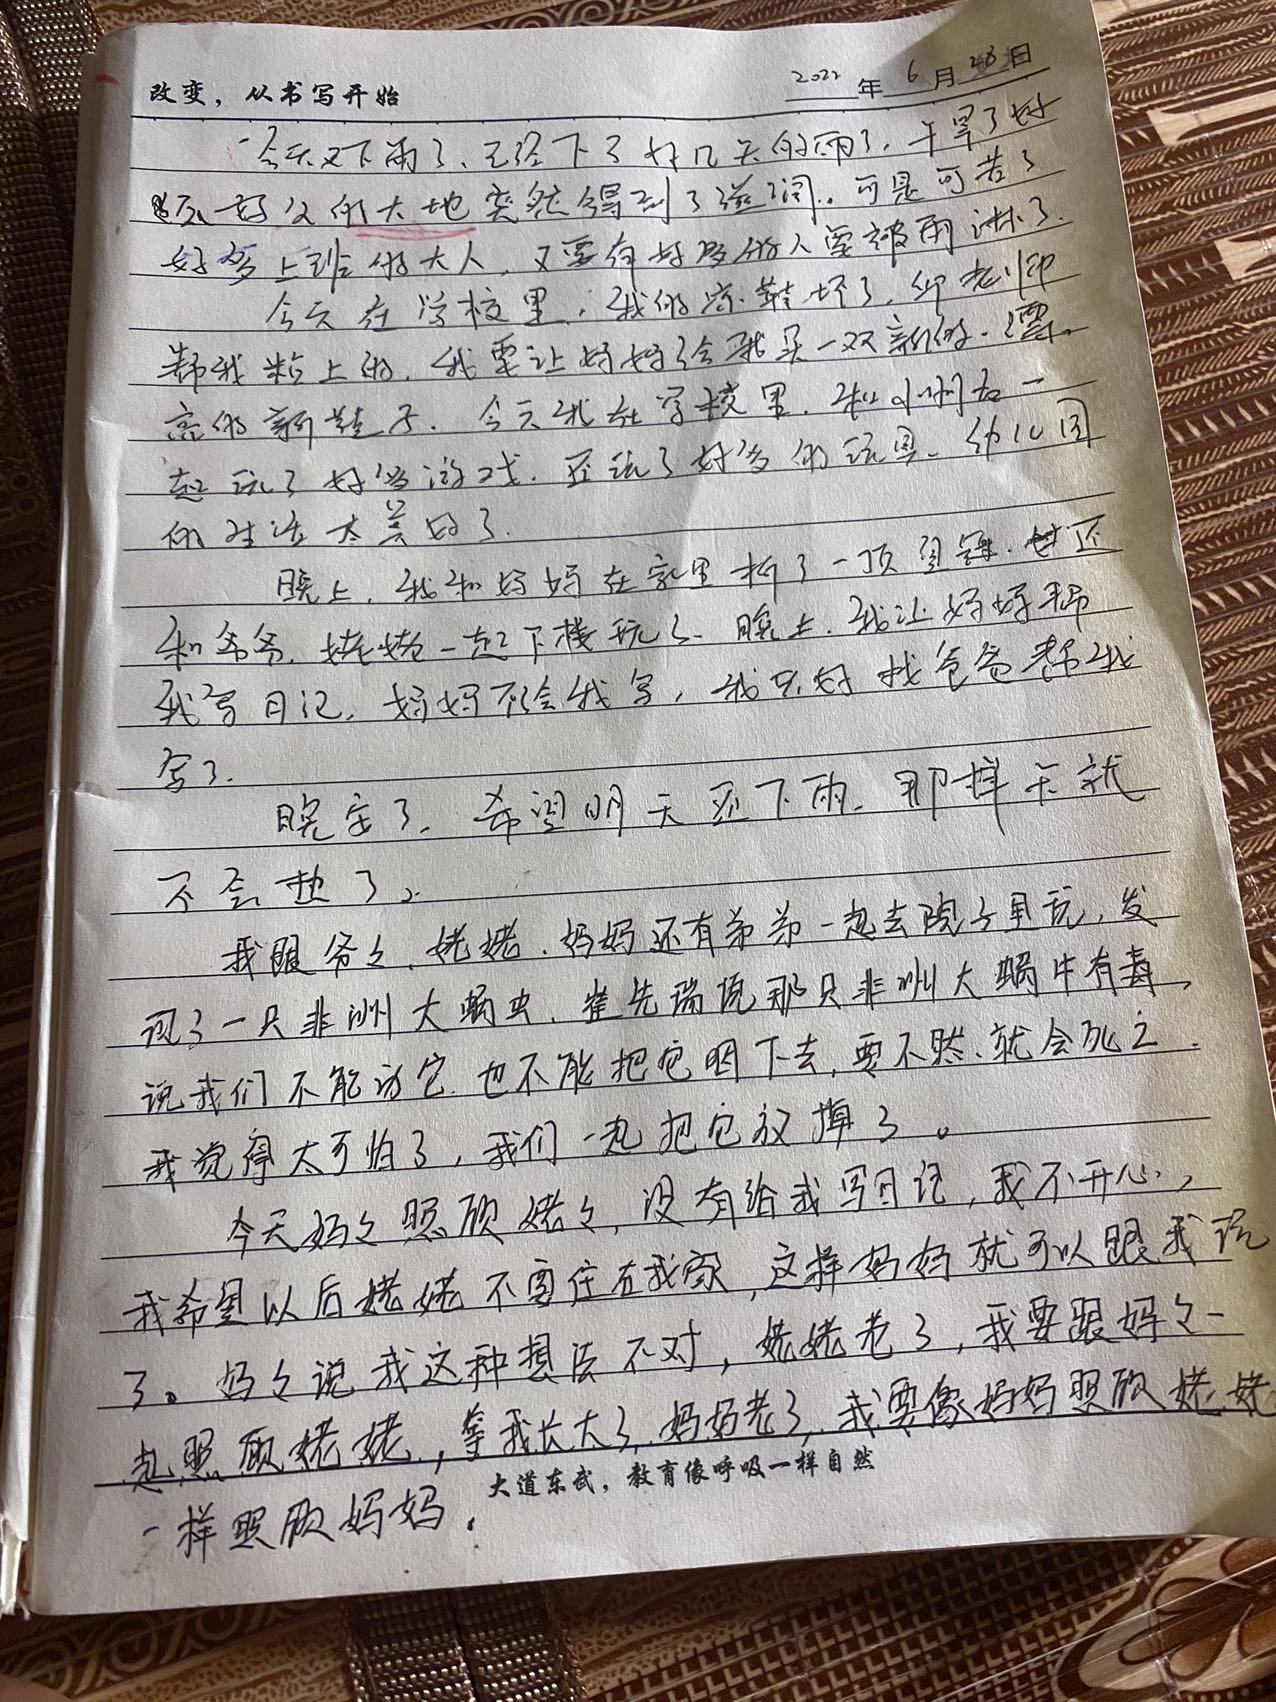 改变，从书写开始
2022年6月28日
今天又下雨了、已经下了好几天的雨了，干旱了好
好久的大地突然得到了滋润。可是可苦了
好多上班的大人，又要有好多的人要被雨淋了.
今天在学校里，我的凉鞋坏了，仰老师
帮我粘上的，我要让妈妈给我买一双新的、漂
亮的新鞋子. 今天我在学校里，和小朋友一
起玩了好多游戏，还玩了好多的玩具、幼儿园
的生活太美好了.
晚上，我和妈妈在家里拆了一顶，还
和爷爷，姥姥一起下楼玩了、晚上，我让妈妈帮
我写日记，妈妈不给我写，我只好找爸爸帮我
写了.
晚安了、希望明天还下雨、那样天就
不会热了、
我跟爷々、姥姥、妈妈还有弟弟一起去院子里玩，发
现了一只非洲大蜗虫，崔先瑞说那只非洲大蜗牛有毒，
说我们不能动它，也不能把它咽下去，要不然、就会死亡.
我觉得太可怕了，我们一起把它放掉了。
今天妈々照顾姥々，没有给我写日记，我不开心，
我希望以后姥姥不要住在我家，这样妈妈就可以跟我玩
了。妈々说我这种想法不对，姥姥老了，我要跟妈々一
起照顾姥姥，等我长大了，妈妈老了，我要像妈妈照顾姥姥
大道东武，教育像呼吸一样自然
一样照顾妈妈.